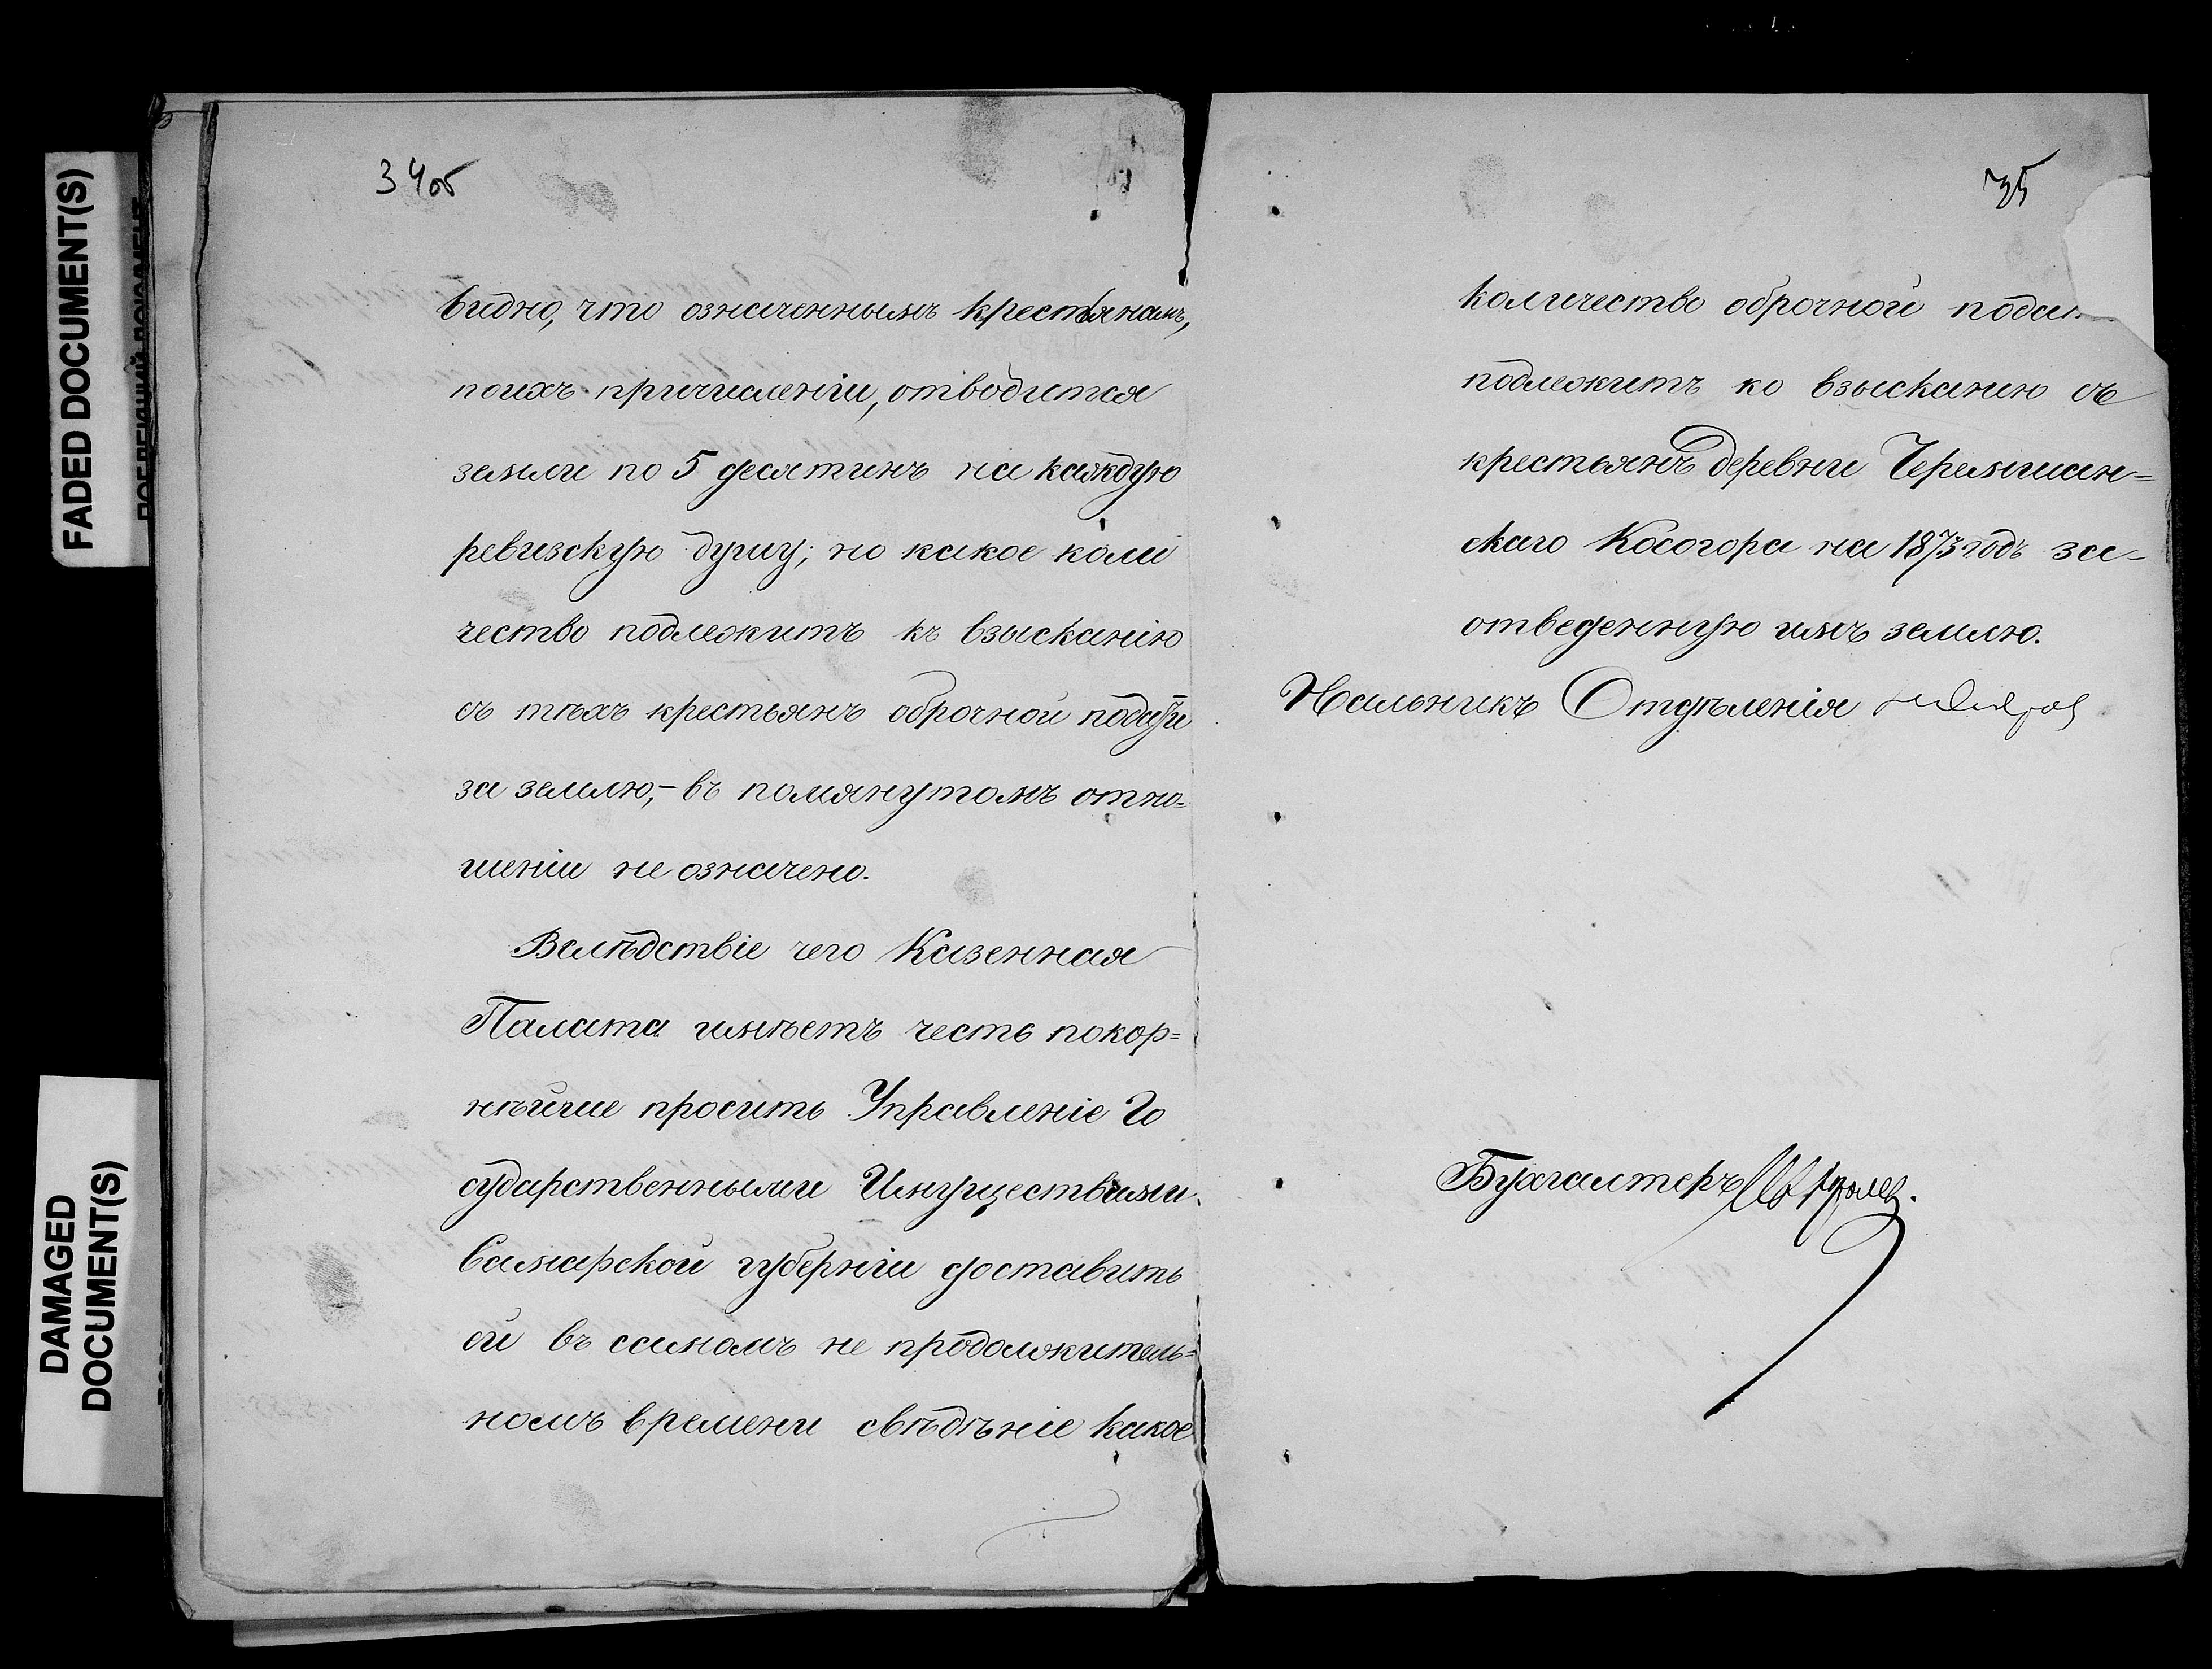 FADED DOCUMENT(S)
DAMAGED
DOCUMENT(S)
34об
видно, что означеннымъ крестьянамъ,
по ихъ причисленіи, отводится
земли по 5 десятинъ на каждую
ревизскую душу; но какое коли
чество подлежитъ къ взысканію
съ тѣхъ крестьянъ оброчной подати
за землю,- въ помянутомъ отно=
шеніи не означено.
Вслѣдствіе чего Казенная
Палата имѣетъ честь покор=
нѣйше просить Управленіе Го
сударственными Имуществами
Самарской губерніи доставить
ей въ самомъ не продолжитель=
номъ времени свѣдѣніе какое
35
количество оброчной
подлежитъ ко взысканию съ
крестьянъ деревни Черемшан=
скаго Косогора на 1873 годъ за-
отведенную имъ землю.
Начальникъ Отдѣленія
Бухгалтеръ